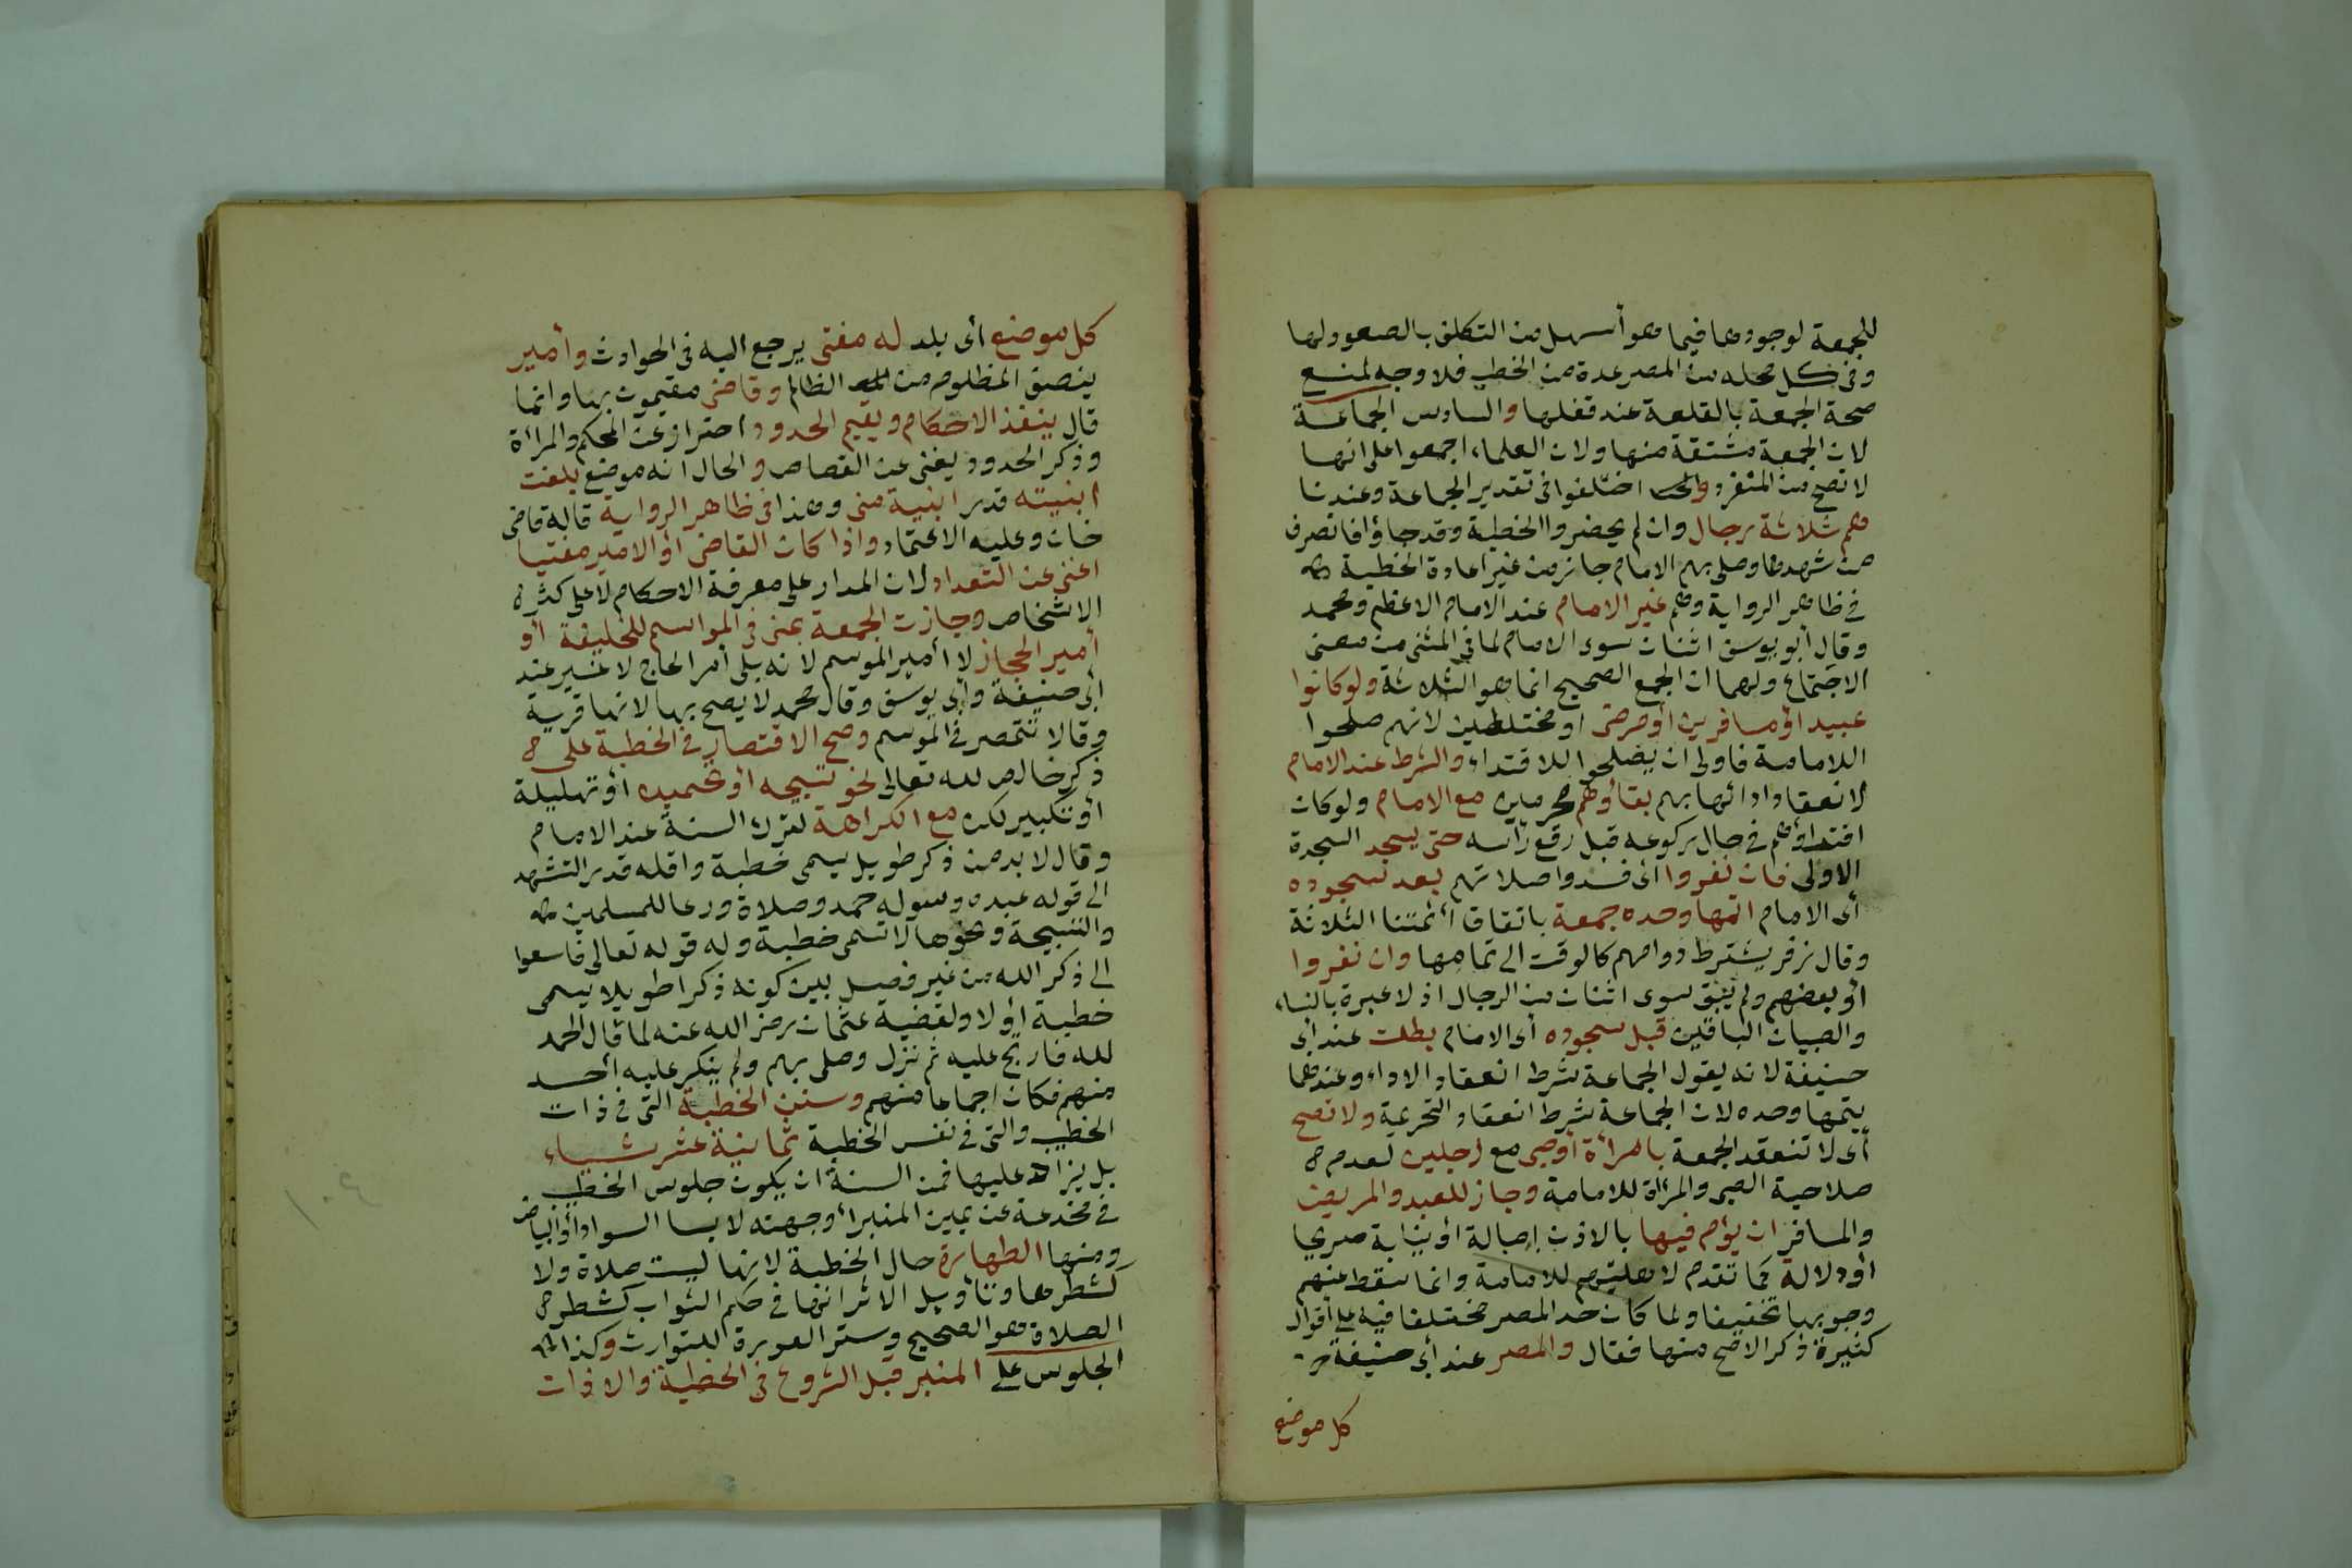 للجمعة لوجودها فيما هو أسهل من التكلف بالصعود لها
وفى كل محله من المصر عدة من الخطب فلا وجه لمنع
صحة الجمعة بالقلعة عند قفلها والسادس الجماعة
لان الجمعة مشتقة منها ولان العلماء اجمعوا على انها
لا تصح من المنفرد واختلفوا فى تقدير الجماعة وعندنا
هم ثلاثة رجال وان لم يحضروا الخطبة وقد جاؤا فانصرف
من شهدها وصلى بهم الامام جاز من غير اعادة الخطبة
فى ظاهر الرواية وهم غير الامام عند الامام الاعظم ومحمد
وقال أبو يوسف اثنان سوى الامام لما فى المثنى من معنى
الاجتماع ولهما ان الجمع الصحيح انما هو الثلاثة ولو كانوا
عبيدا أو مسافرين أو مرضى او مختلطين لانهم صلحوا
اللامامة فاولى ان يصلحوا للاقتداء والشرط عند الامام
لانعقاد ادائها بهم بقاؤهم محرمين مع الامام ولو كان
اقتداؤهم فى حال ركوعه قبل رفع رأسه حتى يسجد السجدة
الاولى فان نفروا اى فسدوا صلاتهم بعد سجوده
أى الامام اتمها وحده جمعة باتفاق أئمتنا الثلاثة
وقال زفر يشترط دوامهم كالوقت الى تمامها وان نفروا
أو بعضهم ولم يبق سوى اثنان من الرجال اذ لا عبرة بالنساء
والصبيان الباقين قبل سجوده أى الامام بطلت عند أبى
حنيفة لانه يقول الجماعة شرط انعقاد الاداء وعندهما
يتمها وحده لان الجماعة شرط انعقاد التحريمة ولا تصح
أى لا تنعقد الجمعة بامرأة أو صبى مع رجلين لعدم
صلاحية الصبى والمرأة للامامة وجاز للعبد والمريض
والمسافر ان يؤم فيها بالاذن اصالة أو نيابة صريحا
أو دلالة كما تقدم لاهليتهم للامامة وانما سقط عنهم
وجوبها تخفيفا ولما كان حد المصر مختلفا فيه على أقوال
كثيرة ذكر الاصح منها فقال والمصر عند أبى حنيفة
كل موضع
كل موضع أى بلد له مفتى يرجع اليه فى الحوادث وأمير
ينصف المظلوم من الظالم وقاضى مقيمون بها وانما
قال ينفذ الاحكام ويقيم الحدود احترازا عن المحكم والمرأة
وذكر الحدود يغنى عن القصاص والحال انه موضع بلغت
ابنيته قدر ابنية منى وهذا فى ظاهر الرواية قاله قاضى
خان وعليه الاعتماد واذا كان القاضى أو الامير مفتيا
اغنى عن التعداد لان المدار على معرفة الاحكام لا على كثرة
الاشخاص وجازت الجمعة بمنى فى المواسم للخليفة أو
أمير الحجاز لا أمير الموسم لانه يلى أمر الحاج لا غير عند
ابى حنيفة وأبى يوسف وقال محمد لا يصح بها لانها قرية
وقالا تتمصر فى الموسم وصح الاقتصار فى الخطبة على
ذكر خالص لله تعالى نحو تسبيحه أو تحميده أو تهليلة
أو تكبير لكن مع الكراهة لترك السنة عند الامام
وقال لا بد من ذكر طويل يسمى خطبة واقله قدر التشهد
الى قوله عبده ورسوله حمد وصلاة ودعا للمسلمين
والتسبيحة ونحوها لا تسمى خطبة وله قوله تعالى فاسعوا
الى ذكر الله من غير فصل بين كونه ذكرا طويلا يسمى
خطبة أو لا ولقضية عثمان رضى الله عنه لما قال الحمد
لله فارتج عليه ثم نزل وصلى بهم ولم ينكر عليه أحد
منهم فكان اجماعا منهم وسنن الخطبة التى فى ذات
الخطيب والتى فى نفس الخطبة ثمانية عشر شياء
بل يزاد عليها فمن السنة ان يكون جلوس الخطيب
فى مخدعة عن يمين المنبر أو جهته لابسا السواد أو البياض
ومنها الطهارة حال الخطبة لانها ليست صلاة ولا
كشطرها وتأويل الاثر انها فى حكم الثواب كشطر
الصلاة هو الصحيح وستر العورة للتوارث وكذا
الجلوس على المنبر قبل الشروع فى الخطبة والاذان